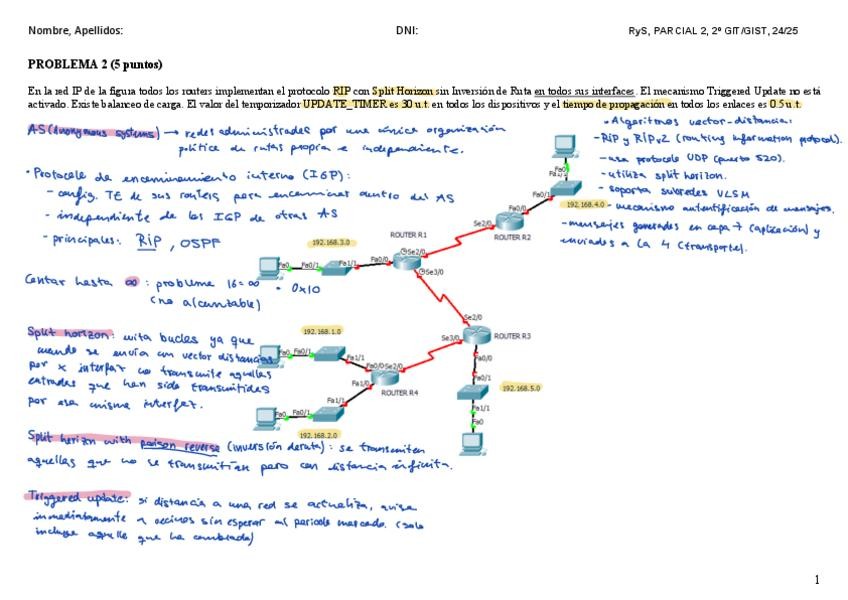 Nombre, Apellidos: DNI: RyS, PARCIAL 2, 2º GIT/GIST, 24/25
PROBLEMA 2 (5 puntos)
En la red IP de la figura todos los routers implementan el protocolo RIP con Split Horizon sin Inversión de Ruta en todos sus interfaces. El mecanismo Triggered Update no está
activado. Existe balanceo de carga. El valor del temporizador UPDATE_TIMER es 30 u.t. en todos los dispositivos y el tiempo de propagación en todos los enlaces es 0.5 u.t.
AS (Anonymous systems) → redes administradas por una única organización
política de rutas propia e independiente.
• Protocolo de encaminamiento interno (IGP):
- config. TE de sus routers para encaminar dentro del AS
- independiente de los IGP de otras AS
- principales: RIP, OSPF
Contar hasta ∞ : problema 16=∞ = 0x10
(no alcanzable)
Split horizon: evita bucles ya que
cuando se envía un vector distancias
por x interfaz no transmite aquellas
entradas que han sido transmitidas
por esa misma interfaz.
Split horizon with poison reverse (inversión de ruta): se transmiten
aquellas que no se transmitían pero con distancia infinita.
Triggered update: si distancia a una red se actualiza, avisa
inmediatamente a vecinos sin esperar al periodo marcado. (solo
incluye aquello que ha cambiado)
• Algoritmos vector-distancia:
- RIP y RIPv2 (routing information protocol).
- usa protocolo UDP (puerto 520).
- utiliza split horizon.
- soporta subredes VLSM
- mecanismo autentificación de mensajes.
- mensajes generados en capa 7 (aplicación) y
enviados a la 4 (transporte).
Fa0
Fa1/1
Fa0/1
192.168.4.0
Fa0/0
Se2/0
ROUTER R2
ROUTER R1
192.168.3.0
Fa0 Fa0/1 Fa1/1 Fa0/0
Se2/0
Se3/0
Se2/0
ROUTER R3
Se3/0
Fa0/0
192.168.1.0
Fa0 Fa0/1 Fa1/1
Fa0/0 Se2/0
Fa1/0
ROUTER R4
Fa0/1
192.168.5.0
Fa1/1
Fa0
Fa1/1
Fa0 Fa0/1
192.168.2.0
1